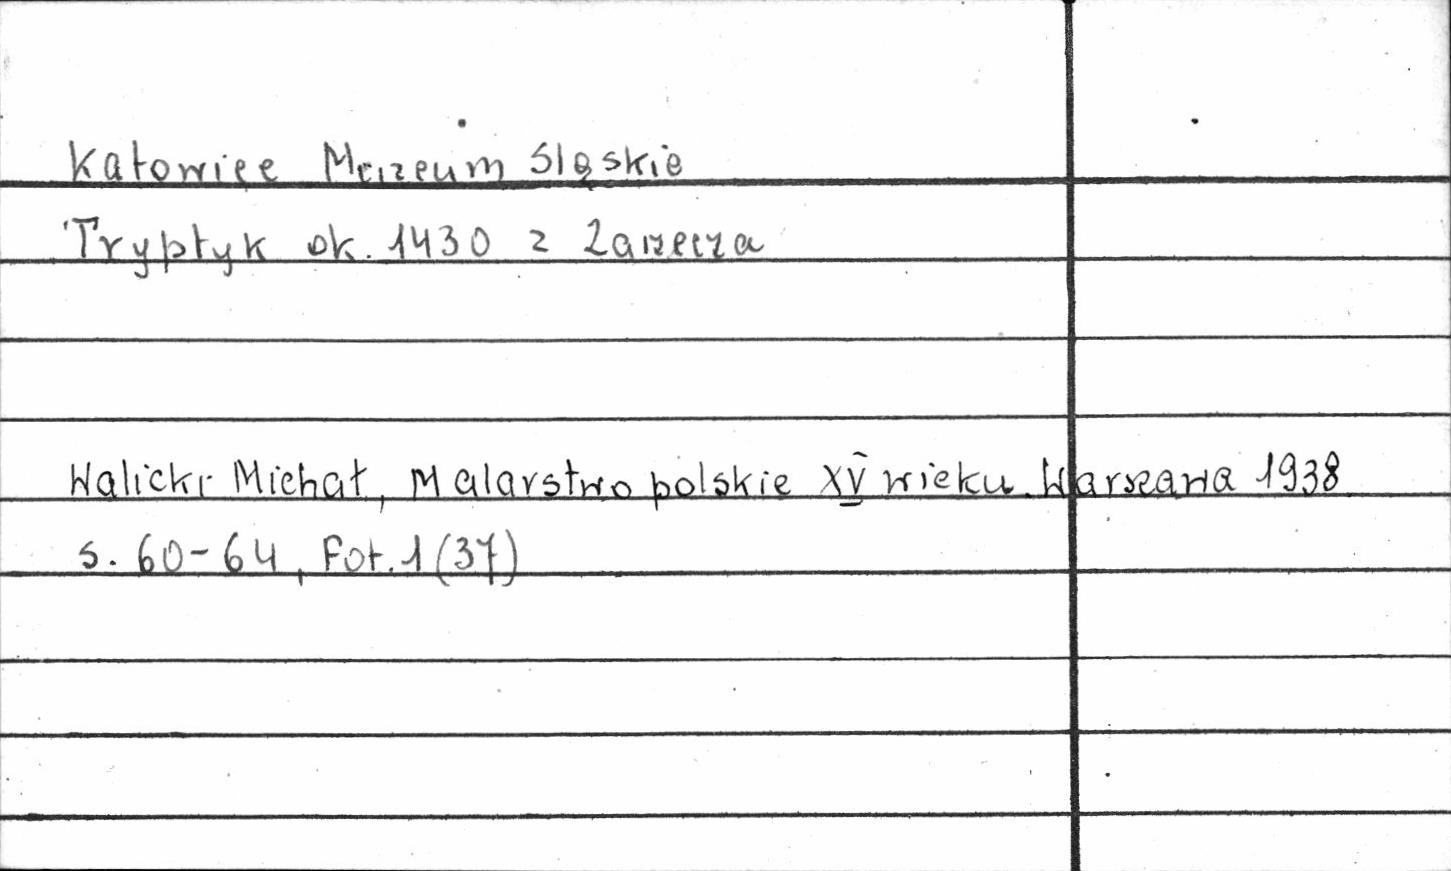 Katowice Muzeum Śląskie
Tryptyk ok. 1430 z Zarzecza
Walicki Michał, Malarstwo polskie XV wieku. Warszawa 1938
s. 60-64, Fot. 1 (37)